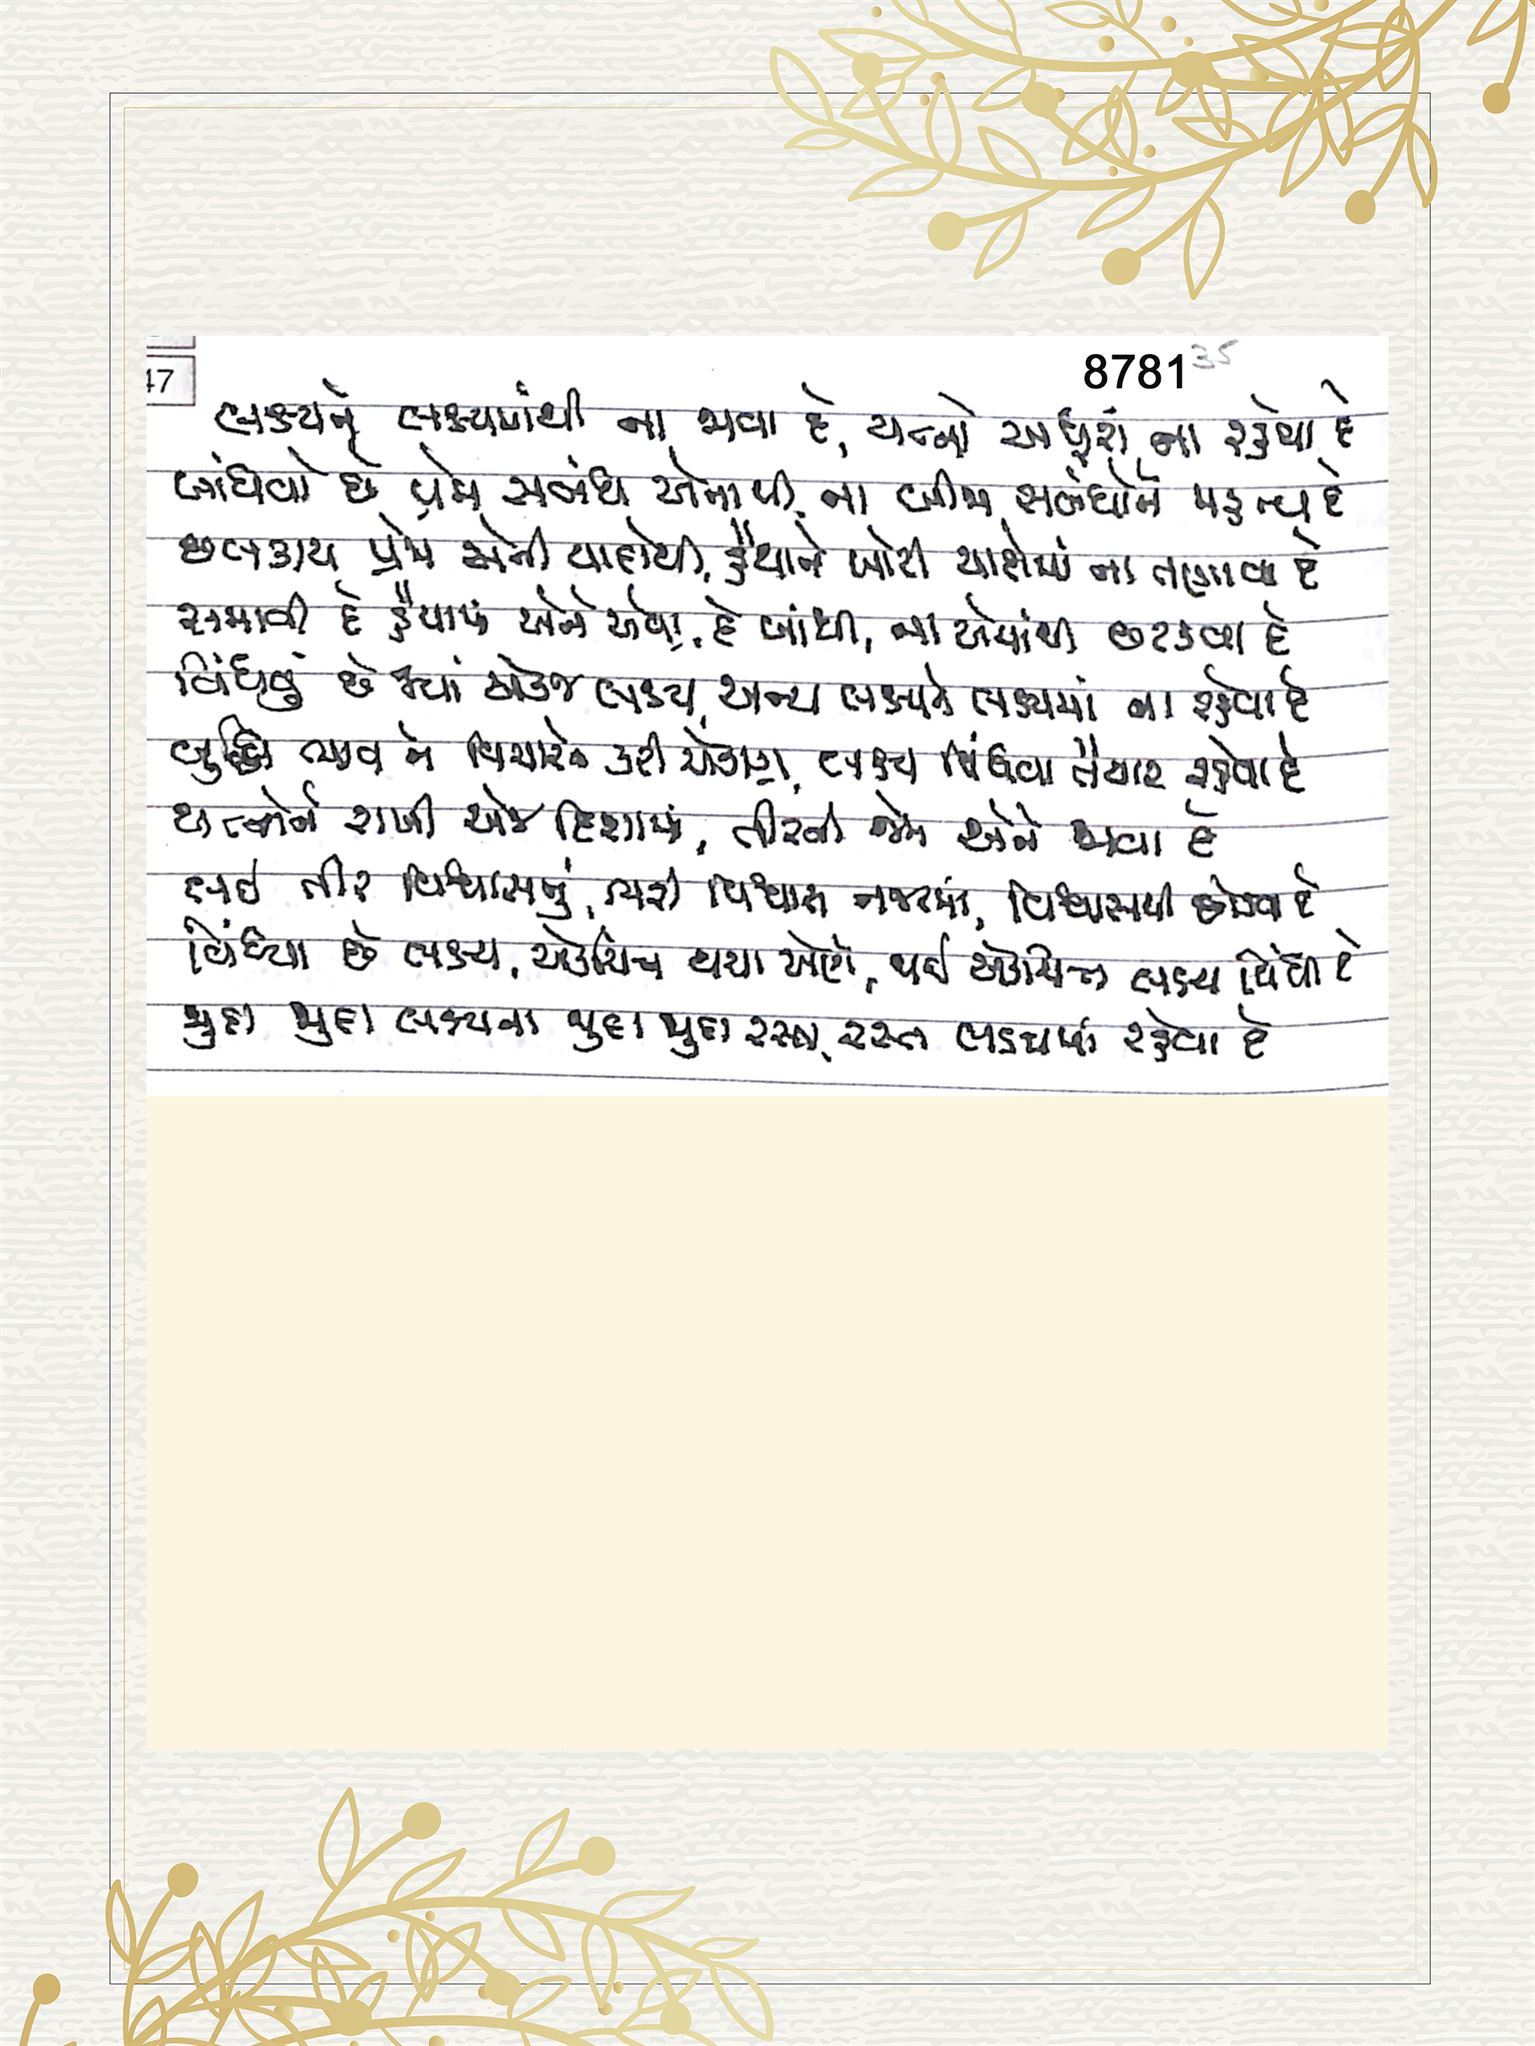 47
8781
35
લક્ષ્યને લક્ષ્યમાંથી ના જાવા દે, યત્નો અધૂરાં ના રહેવા દે
બાંધવો છે પ્રેમ સબંધ એનાથી, ના બીજા સબંધોને મહત્વ દે
છલકાય પ્રેમ એની યાદોથી, હૈયાને ખોટી યાદોમાં ના તણાવા દે
સમાવી દે હૈયામાં એને એવા, દે બાંધી, ના એમાંથી છટકવા દે
વિંધવું છે જ્યાં એકજ લક્ષ્ય, અન્ય લક્ષ્યને લક્ષ્યમાં ના રહેવા દે
બુદ્ધિ ભાવ ને વિચારને કરી એકાગ્ર, લક્ષ્ય વિંધવા તૈયાર રહેવા દે
યત્નોને રાખી એજ દિશામાં, તીરની જેમ એને જાવા દે
લઈ તીર વિશ્વાસનું, ભરી વિશ્વાસ નજરમાં, વિશ્વાસથી છોડવા દે
વિંધ્યા છે લક્ષ્ય, એકચિત્ત થયા એણે, થઈ એકચિત્ત લક્ષ્ય વિંધી દે
જુદા જુદા લક્ષ્યના જુદા જુદા રસ્તા, રસ્તા લક્ષ્યમાં રહેવા દે